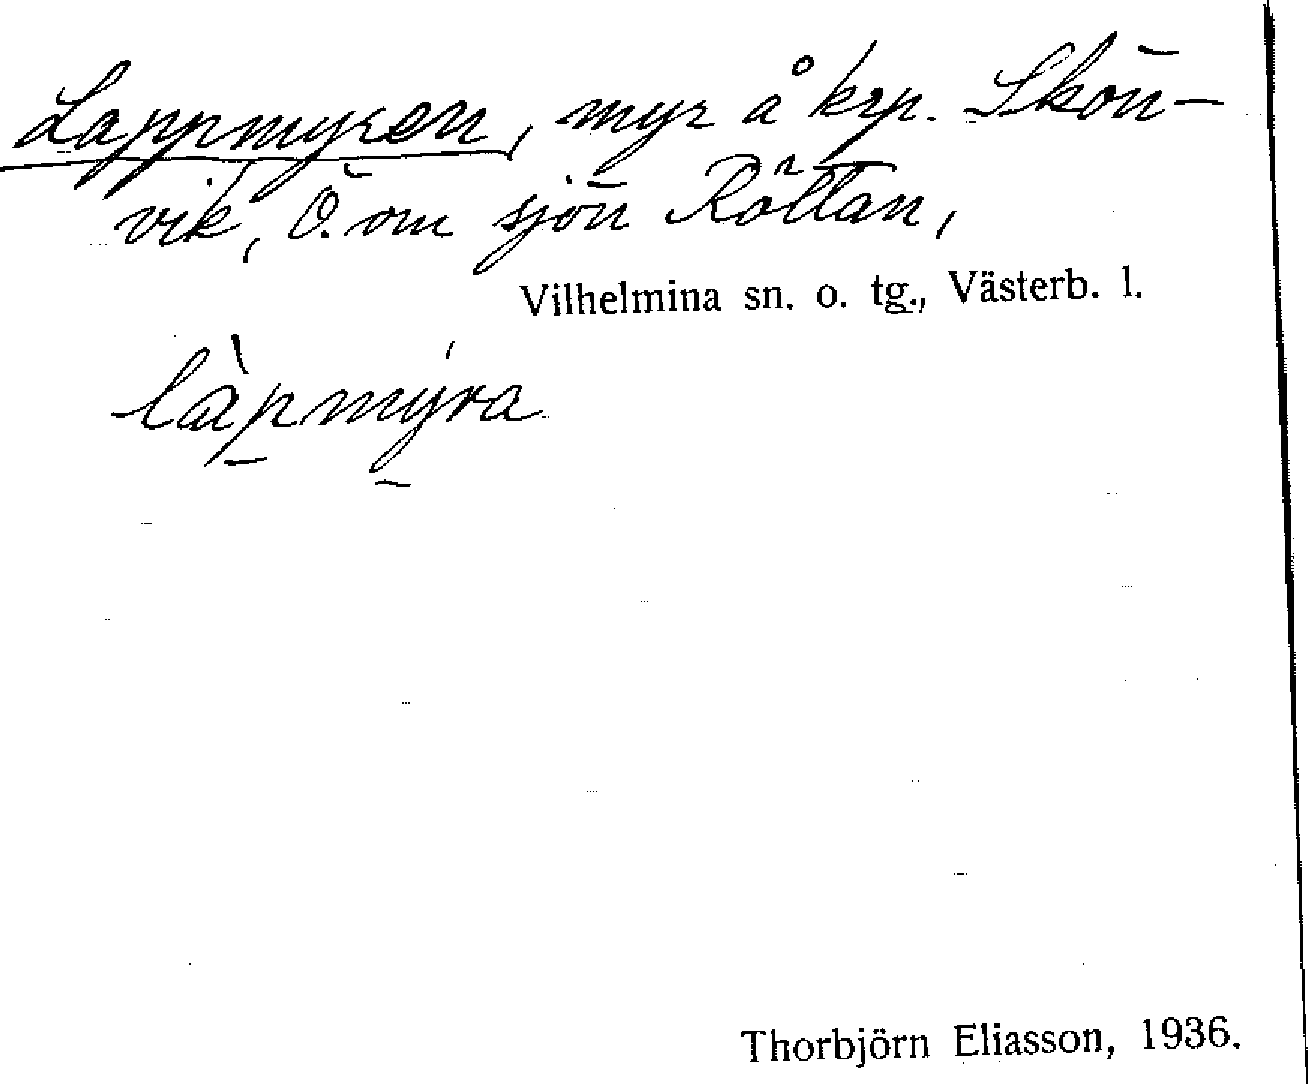 Lappmyren, myr å krp. Skön-
vik, Ö. om sjön Röttan,
Vilhelmina sn. o. tg., Västerb. l.
làpmýra
Thorbjörn Eliasson, 1936.